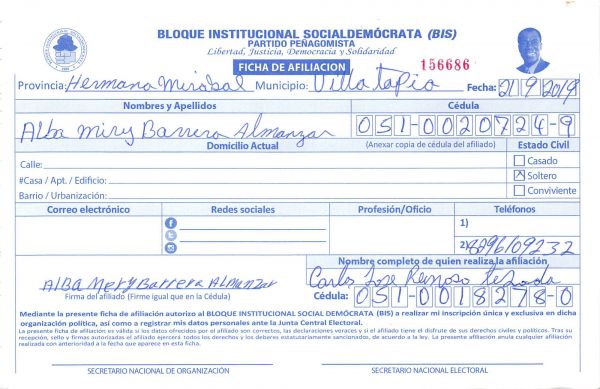 BLOQUE INSTITUCIONAL SOCIALDEMÓCRATA (BIS)
PARTIDO PEÑAGOMISTA
Libertad, Justicia, Democracia y Solidaridad
FICHA DE AFILIACION 156686
Provincia: Hermana Mirabal Municipio: Villa Tapia Fecha: 21/9/2019
Nombres y Apellidos Cédula
Alba Miry Barrera Almanzar 051-0020724-9
Domicilio Actual (Anexar copia de cédula del afiliado) Estado Civil
Calle: Casado
#Casa / Apt. / Edificio: X Soltero
Barrio / Urbanización: Conviviente
Correo electrónico Redes sociales Profesión/Oficio Teléfonos
1)
2) 8296109232
Nombre completo de quien realiza la afiliación
Alba Mery Barrera Almanzar Carlos Jose Reinoso Tejada
Firma del afiliado (Firme igual que en la Cédula) Cédula: 051-0018278-0
Mediante la presente ficha de afiliación autorizo al BLOQUE INSTITUCIONAL SOCIAL DEMÓCRATA (BIS) a realizar mi inscripción única y exclusiva en dicha
organización política, así como a registrar mis datos personales ante la Junta Central Electoral.
La presente ficha de afiliación es válida si los datos ofrecidos por el afiliado son correctos, las declaraciones veraces y si el afiliado tiene el disfrute de sus derechos civiles y políticos. Tras su
recepción, sello y firmas autorizadas el afiliado ejercerá todos los derechos y los deberes estatutariamente sancionados, de acuerdo a la ley. La presente afiliación anula cualquier afiliación
realizada con anterioridad a la fecha que aparece en esta ficha.
SECRETARIO NACIONAL DE ORGANIZACIÓN SECRETARIO NACIONAL ELECTORAL